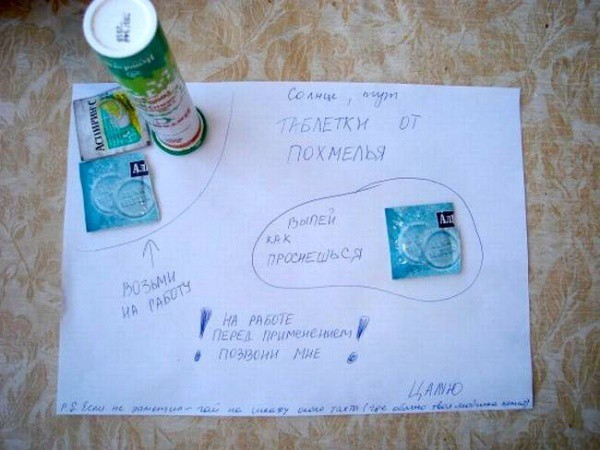 Солнце, тут
ТАБЛЕТКИ ОТ
ПОХМЕЛЬЯ
АСПИРИН С
Ал
ВЫПЕЙ
КАК
ПРОСНЕШЬСЯ
Ал
ВОЗЬМИ
НА РАБОТУ
! НА РАБОТЕ !
ПЕРЕД ПРИМЕНЕНИЕМ
ПОЗВОНИ МНЕ
ЦАЛУЮ
P.S. Если не заметил – чай на шкафу около